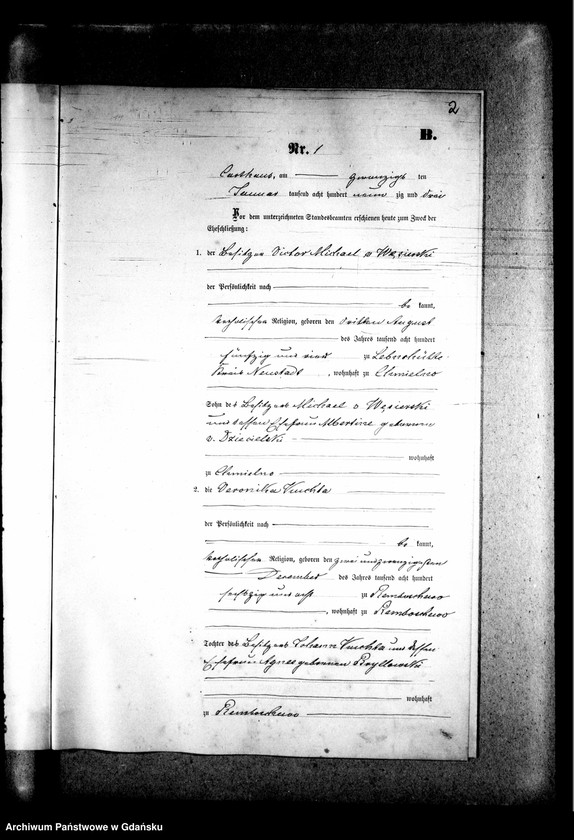 2
B.
Nr. 1
Carthaus, am zwanzigsten ten
Januar tausend acht hundert neun zig und drei
Vor dem unterzeichneten Standesbeamten erschienen heute zum Zweck der
Eheschließung:
1. der Besitzer Victor Michael v Węsierski
der Persönlichkeit nach
be kannt,
katholischer Religion, geboren den dritten August
des Jahres tausend acht hundert
fünfzig und vier zu
Kreis Neustadt, wohnhaft zu Chmielno
Sohn des Besitzers Michael v Węsierski
und dessen Ehefrau Albertine geborenen
v. Dzięcielski
wohnhaft
zu Chmielno
2. die Veronika Kuchta
der Persönlichkeit nach
be kannt,
katholischer Religion, geboren den zwei und zwanzigsten
Dezember des Jahres tausend acht hundert
sechszig und acht zu Remboschewo
, wohnhaft zu Remboschewo
Tochter des Besitzers Johann Kuchta und dessen
Ehefrau Agnes geborenen
wohnhaft
zu Remboschewo
Archiwum Państwowe w Gdańsku